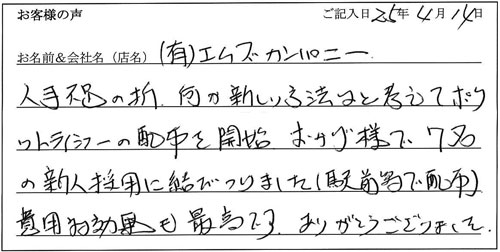 お客様の声 ご記入日 25年 4月 14日
お名前&会社名(店名) (有)エムズカンパニー
人手不足の折、何か新しい方法はと考えてポケ
ットティシューの配布を開始 おかげ様で 7名
の新人採用に結びつけました(駅前等で配布)
費用対効果も最高です. ありがとうございました.